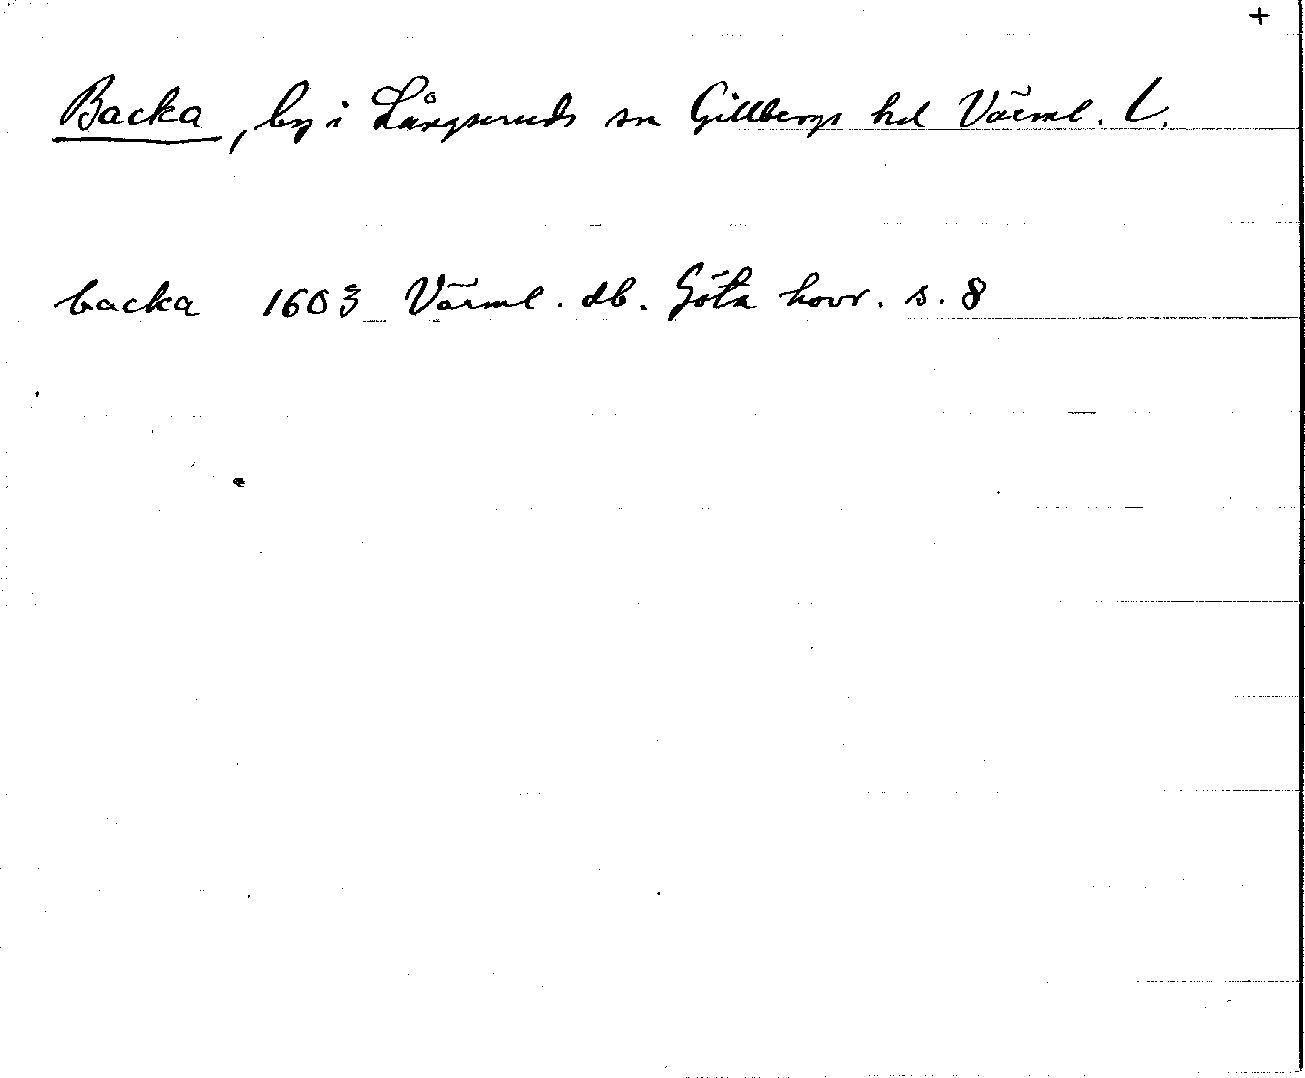 +
Backa, by i Långseruds sn Gillbergs hd Värml. L.
backa 1603 Värml. db. Göta hovr. s. 8